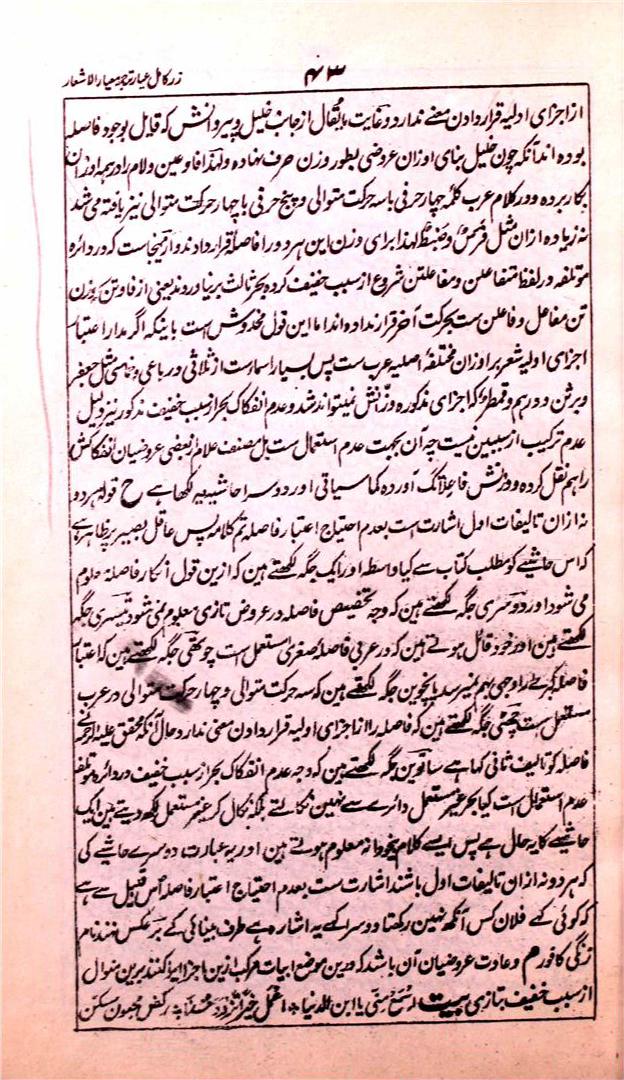 ۴۳ زر کامل عیار ترجمہ معیار الاشعار
از اجزای اولیہ قرار دادن معنے ندارد و غایت مایقال از جانب خلیل و پیروانش کہ قایل بوجود فاصلہ
بودہ اند آنکہ چون خلیل بنای اوزان عروضی بطور وزن حرف نہادہ و لہذا فا و عین و لام را در ہمہ اوزان
بکار بردہ و در کلام عرب کلمہ چہار حرفی باسہ حرکت متوالی و پنج حرفی با چہار حرکت متوالی نیز یافتہ می شد
نہ زیادہ ازان مثل و لہذا برای وزن این ہر دو را فاصلہ قرار دادند و از نیجاست کہ در دائرہ
موتلفہ در لفظ متفاعلن و مفاعلتن شروع از سبب خفیف کردہ بحر ثالث بر نیاوردند یعنی از فاوتن کہ بوزن
تن مفاعل و فاعلن ست بحرکت آخر قرار ندادہ اند اما این قول مخدوش است باینکہ اگر مدار اعتبار
اجزای اولیہ شعر بر اوزان مختلفہ اصلیہ عرب ست پس بسیار اسماست از ثلاثی و رباعی و خماسی مثل جعفر
و برثن و درہم و قمطر کہ اجزای مذکورہ وزانش نمیتواند شد و عدم انفکاک بحر از سبب خفیف مذکور نیز دلیل
عدم ترکیب از سببین نیست چہ آن بجہت عدم استعمال ست بل مصنف علام از بعضی عروضیان انفکاکش
را ہم نقل کردہ و وزنش فاعلاتک آوردہ کما سیاتی اور دوسرا حاشیہ یہ لکھا ہے ح قولہ ہر دو
نہ ازان تالیفات اول اشارت است بعدم احتیاج اعتبار فاصلہ تم کلامہ پس عاقل بصیر پر ظاہر ہے
کہ اس حاشیے کو مطلب کتاب سے کیا واسطہ اور ایک جگہ لکھتے ہین کہ ازین قول انکار فاصلہ معلوم
می شود اور دوسری جگہ لکھتے ہین کہ وجہ تخصیص فاصلہ در عروض تازی معلوم نمی شود تیسری جگہ
لکھتے ہین اور خود قائل ہوتے ہین کہ در عربی فاصلہ صغری مستعمل ست چوتھی جگہ لکھتے ہین کہ اعتبار
فاصلہ کبرے را وجہی بہم نمیرسد پانچوین جگہ لکھتے ہین کہ سہ حرکت متوالی و چہار حرکت متوالی در عرب
مستعمل ست چھٹی جگہ لکھتے ہین کہ فاصلہ را از اجزای اولیہ قرار دادن معنی ندارد حال آنکہ محقق علیہ الرحمہ نے
فاصلہ کو تالیف ثانی کہا ہے ساتوین جگہ لکھتے ہین کہ وجہ عدم انفکاک بحر از سبب خفیف در دائرہ موتلفہ
عدم استعمال است کیا بحر غیر مستعمل دائرے سے نہین نکالتے بلکہ نکال کر غیر مستعمل لکھ دیتے ہین ایک
حاشیے کا یہ حال ہے پس ایسے کلام بیخودانہ معلوم ہوتے ہین اور یہ عبارت دوسرے حاشیے کی
کہ ہر دو نہ ازان تالیفات اول باشند اشارت ست بعدم احتیاج اعتبار فاصلہ اس قبیل سے ہے
کہ کوئی کہے فلان کس آنکھ نہین رکھتا و دوسرا کہے یہ اشارہ ہے طرف بینائی کے برعکس نہند نام
زنگی کافور ھم و عادت عروضیان آن باشد کہ درین موضع ابیات مرکب ازین اجزا ایراد کنند برین منوال
از سبب خفیف بتازی بیت یا ابن الدنیا رکض مخبون مسکن